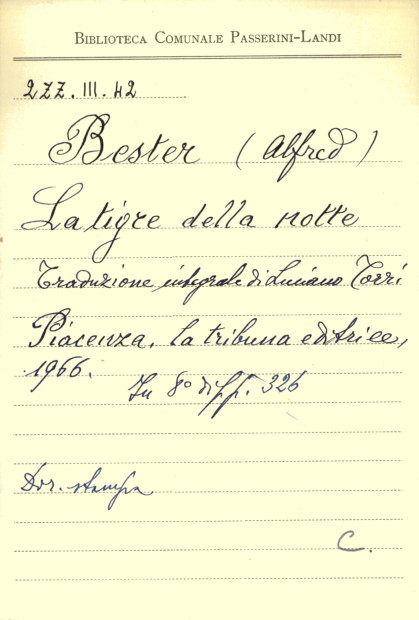 BIBLIOTECA COMUNALE PASSERINI-LANDI
2ZZ. III. 42
Bester (Alfred)
La tigre della notte
Traduzione integrale di Luciano Torri
Piacenza, la tribuna editrice,
1966.
In 8° di pp. 326
Dir. stampa
C.